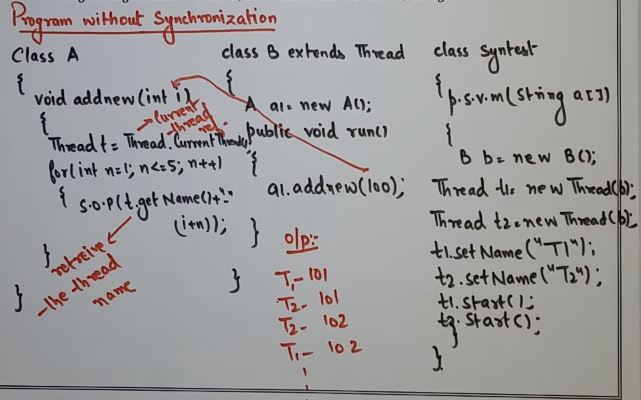 Program without Synchronization
Class A
{
void addnew(int i)
{
Thread t = Thread.CurrentThread();
for(int n=1; n<=5; n++)
{ S.O.P(t.getName()+"-"
(i+n));
}
}
current
thread
retreive
the thread
name
class B extends Thread
{
A a1 = new A();
public void run()
{
a1.addnew(100);
}
}
o/p:-
T1 - 101
T2 - 101
T2 - 102
T1 - 102
class Syntest
{ p.s.v.m(String a[])
{
B b = new B();
Thread t1 = new Thread(b);
Thread t2 = new Thread(b);
t1.setName("T1");
t2.setName("T2");
t1.start();
t2.start();
}
}